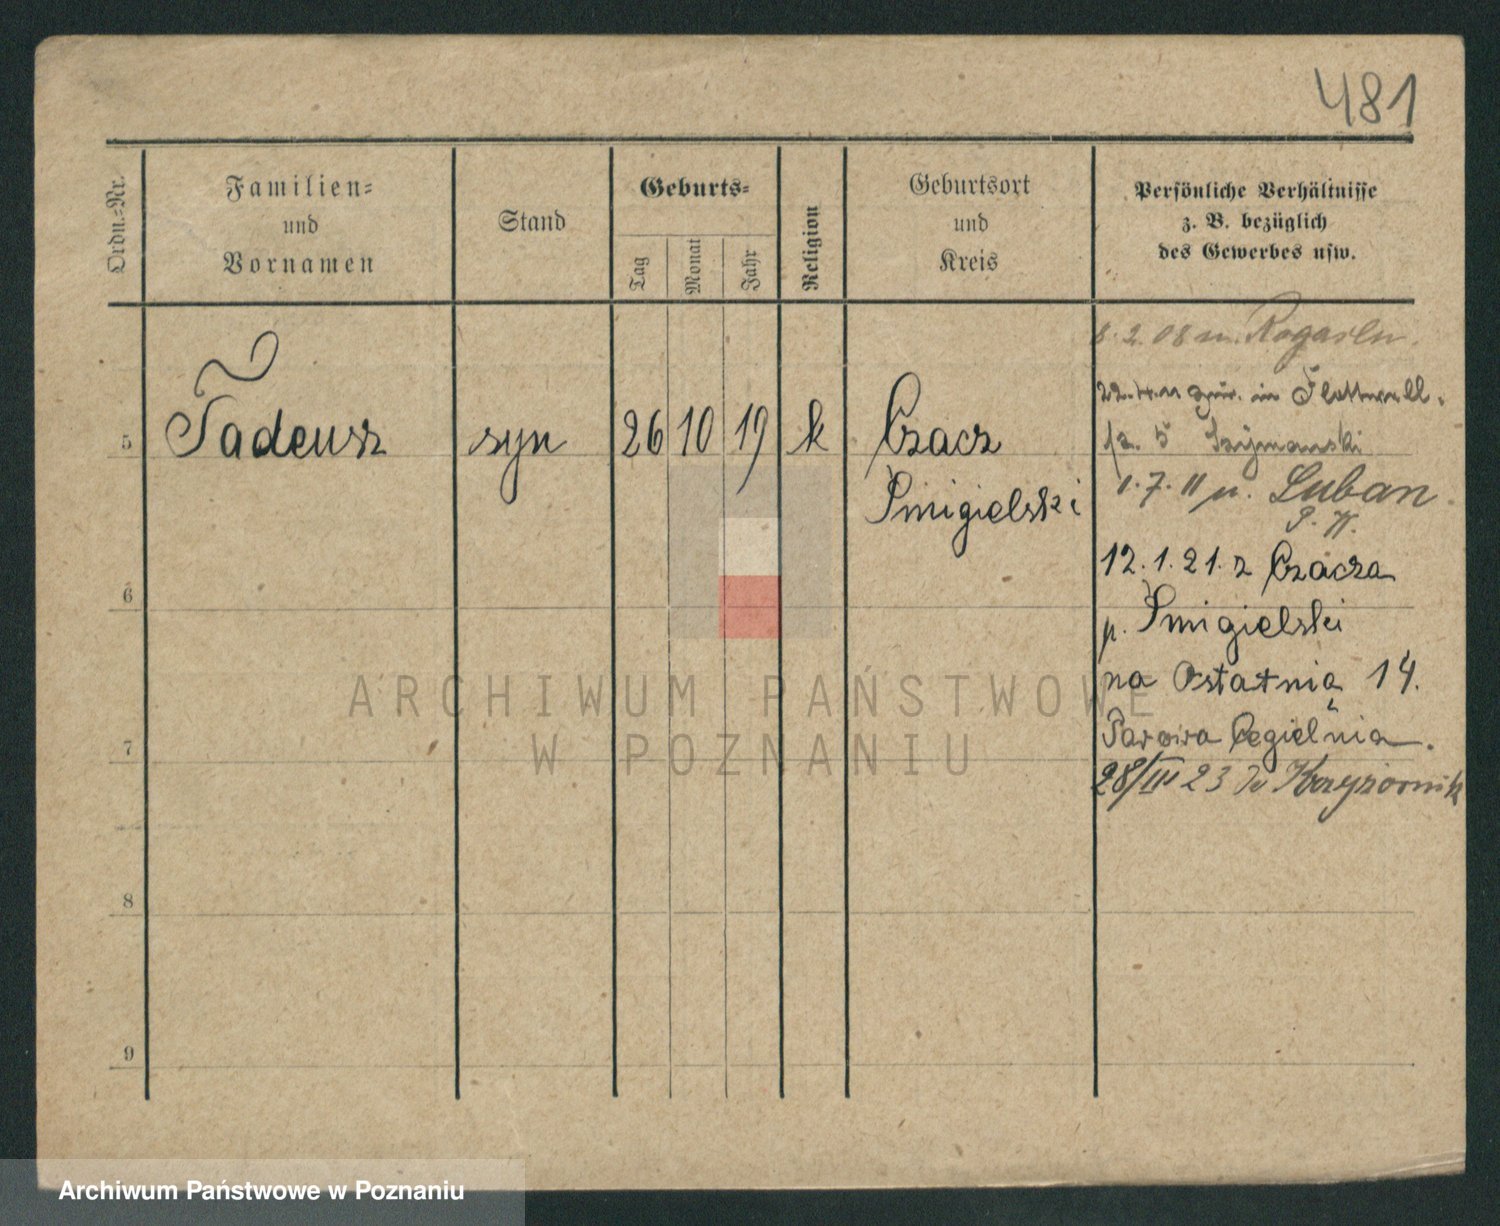 481
Ordn.-Nr.
Familien-
und
Vornamen
Stand
Geburts-
Tag
Monat
Jahr
Religion
Geburtsort
und
Kreis
Persönliche Verhältnisse
z. B. bezüglich
des Gewerbes usw.
8.2.08 n. Rogasen.
22.4.11 zur. in Flottwell-
5 Szymanski
1.7.11 n. Luban.
P. W.
5 Tadeusz syn 26 10 19 k Czacz
Śmigielski
12.1.21. z Czacza
p. Śmigielski
na Ostatnia 14.
Cegielnia.
28/III 23 do
6
7
8
9
ARCHIWUM PAŃSTWOWE
W POZNANIU
Archiwum Państwowe w Poznaniu